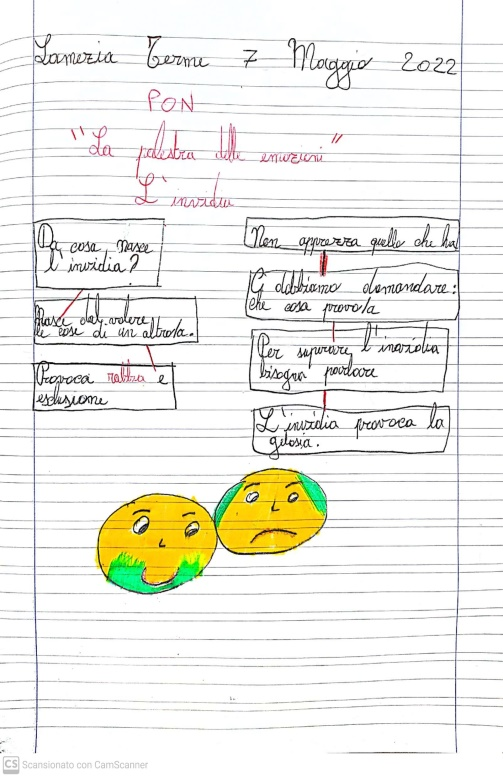 Lamezia Terme 7 Maggio 2022
PON
"La palestra delle emozioni"
L'invidia
Da cosa nasce
l'invidia?
Nasce dal volere
le cose di un altro/a.
Provoca rabbia e
esclusione
Non apprezza quello che ha
Ci dobbiamo domandare:
che cosa provo/a
Per superare l'invidia
bisogna
L'invidia provoca la
gelosia.
CS Scansionato con CamScanner